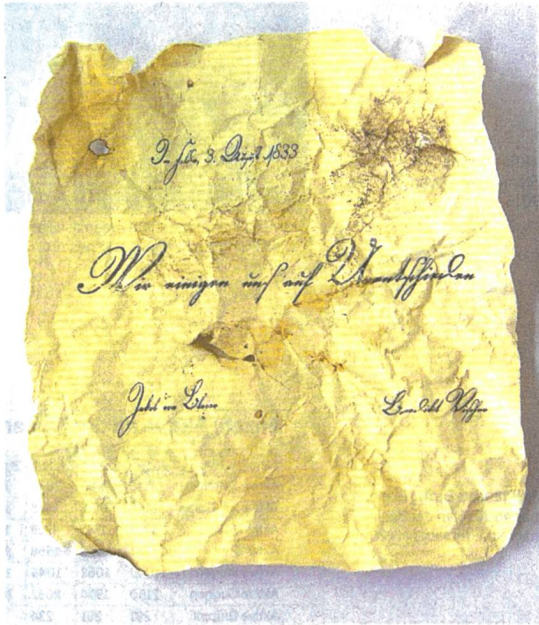 3. August 1833
Wir einigen uns auf Unentschieden
Jakob von Blarer
Benedikt Vischer